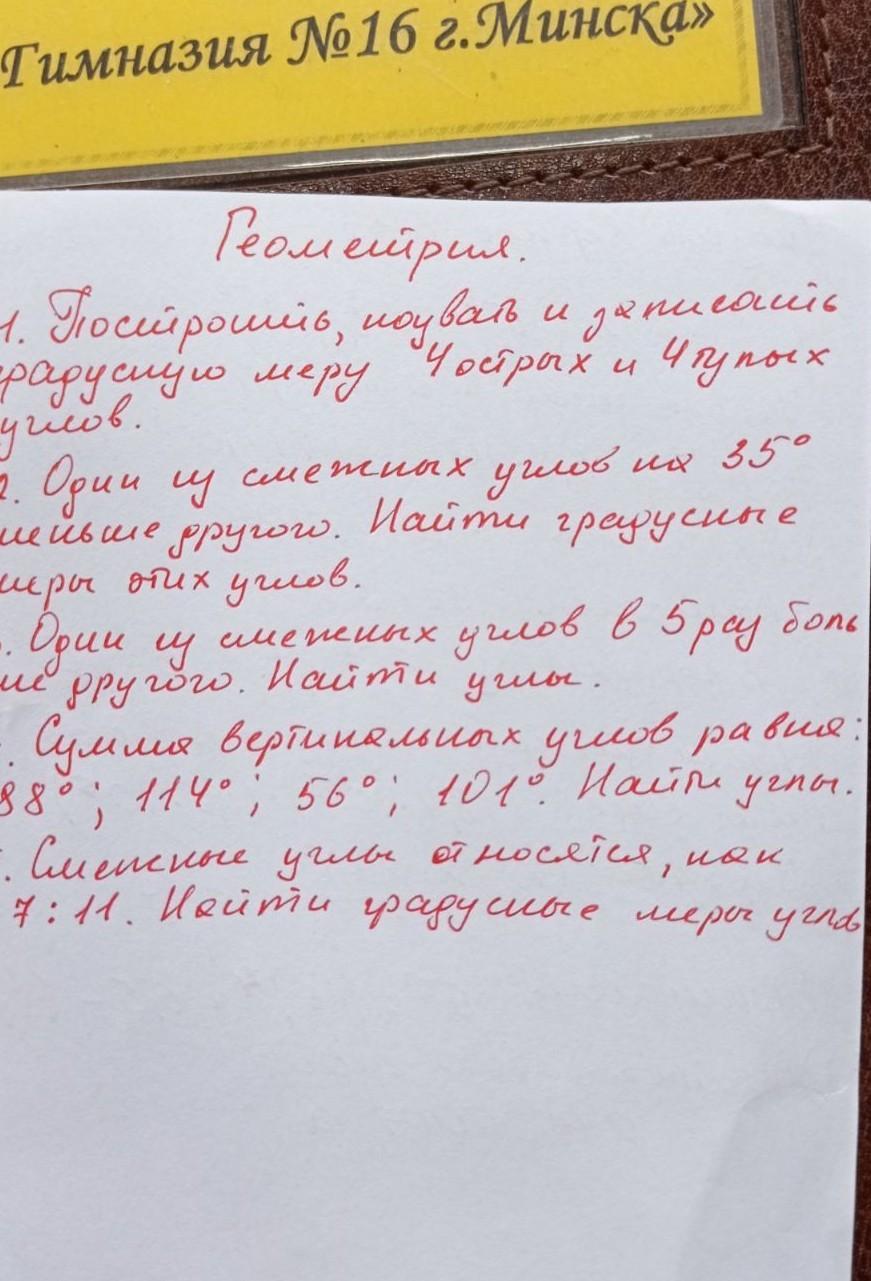 Гимназия №16 г.Минска»
Геометрия.
1. Построить, назвать и записать
градусную меру 4 острых и 4 тупых
углов.
2. Один из смежных углов на 35°
меньше другого. Найти градусные
меры этих углов.
. Один из смежных углов в 5 раз боль
ше другого. Найти углы.
. Сумма вертикальных углов равна:
88°; 114°; 56°; 101°. Найти углы.
. Смежные углы относятся, как
7:11. Найти градусные меры углов